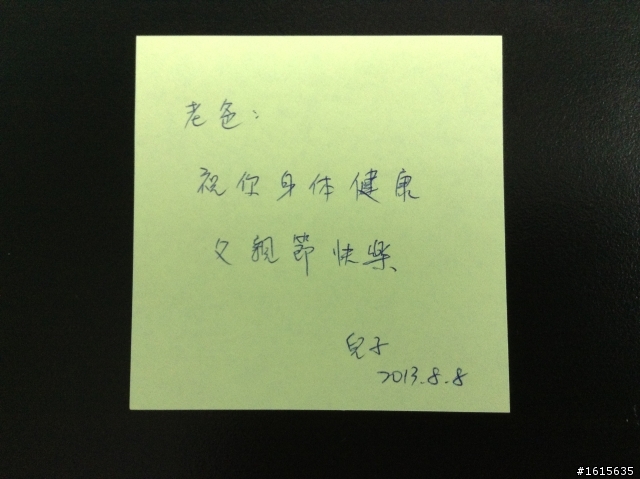 老爸:
祝你身体健康
父親節快樂
兒子
2013.8.8
#1615635